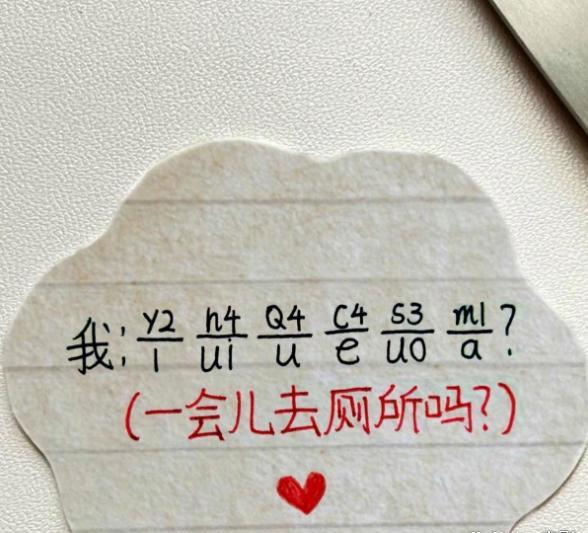 我: y2/i h4/ui Q4/u C4/e S3/uo m1/a ?
(一会儿去厕所吗?)